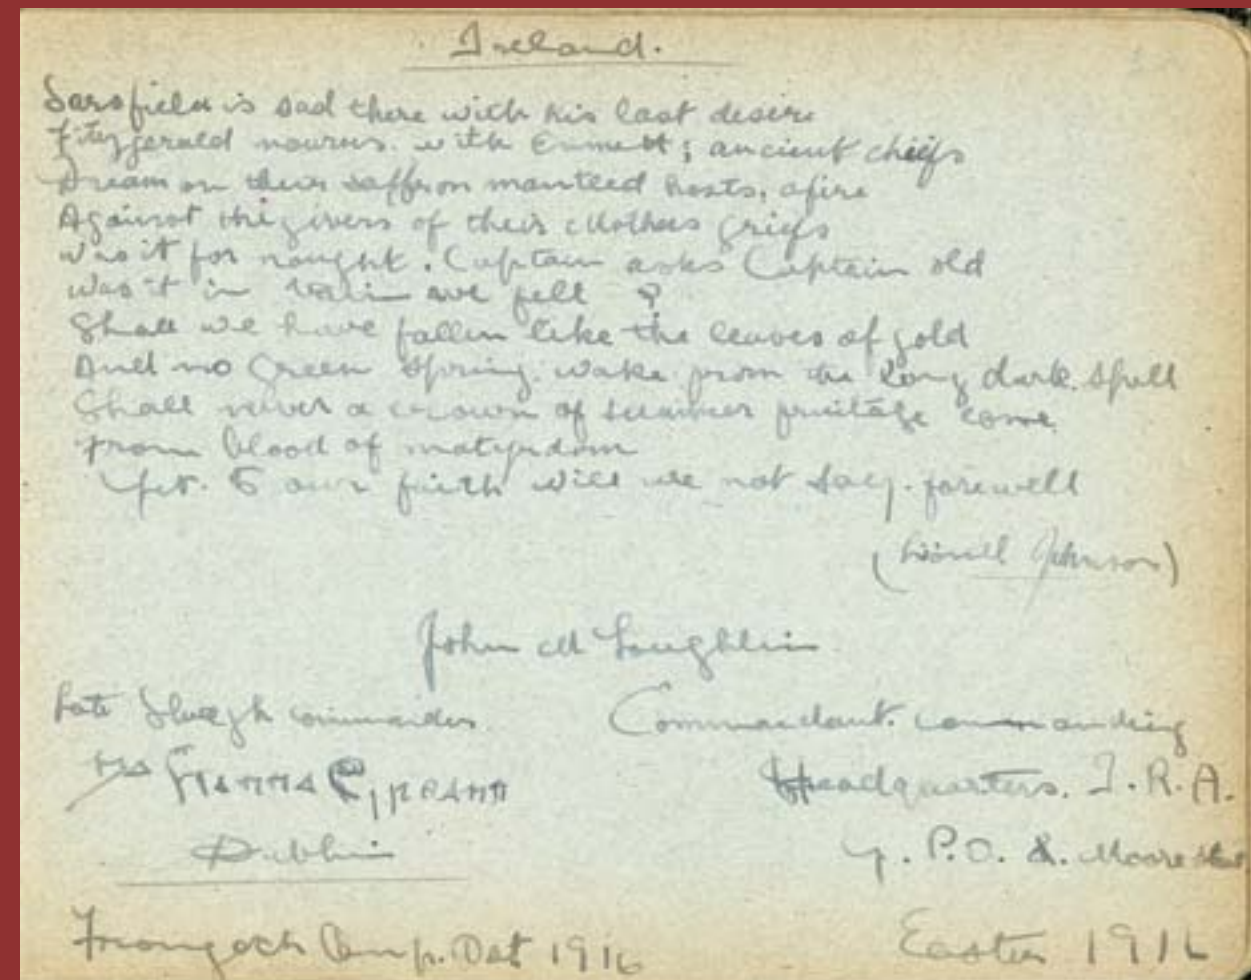 Ireland.
Sarsfield is sad there with his last desire
Fitzgerald mourns. with Emmett; ancient chiefs
Dream on their saffron mantled hosts, afire
Against the givers of their Mothers griefs
Was it for naught. Captain asks Captain old
Was it in vain we fell ?
Shall we have fallen like the leaves of gold
And no Green Spring. wake from the long dark. spell
Shall never a crown of summer fruitage come
From blood of matyrdom
Yet. to our faith will we not say. farewell
(Lionel Johnson)
John McLoughlin
Late Sluagh commander
Commandant. commanding
Na Fianna Éireann
Headquarters. I.R.A.
Dublin
G.P.O. &. Moore
Frongoch Camp. Oct 1916
Easter 1916